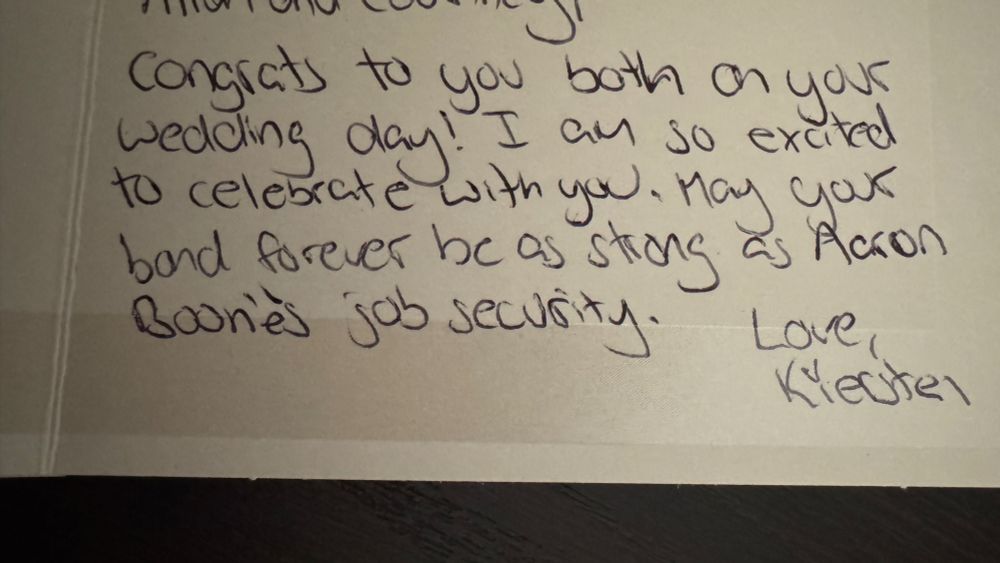 and
Congrats to you both on your
wedding day! I am so excited
to celebrate with you. May your
bond forever be as strong as Aaron
Boone's job security.
Love,
Kiersten